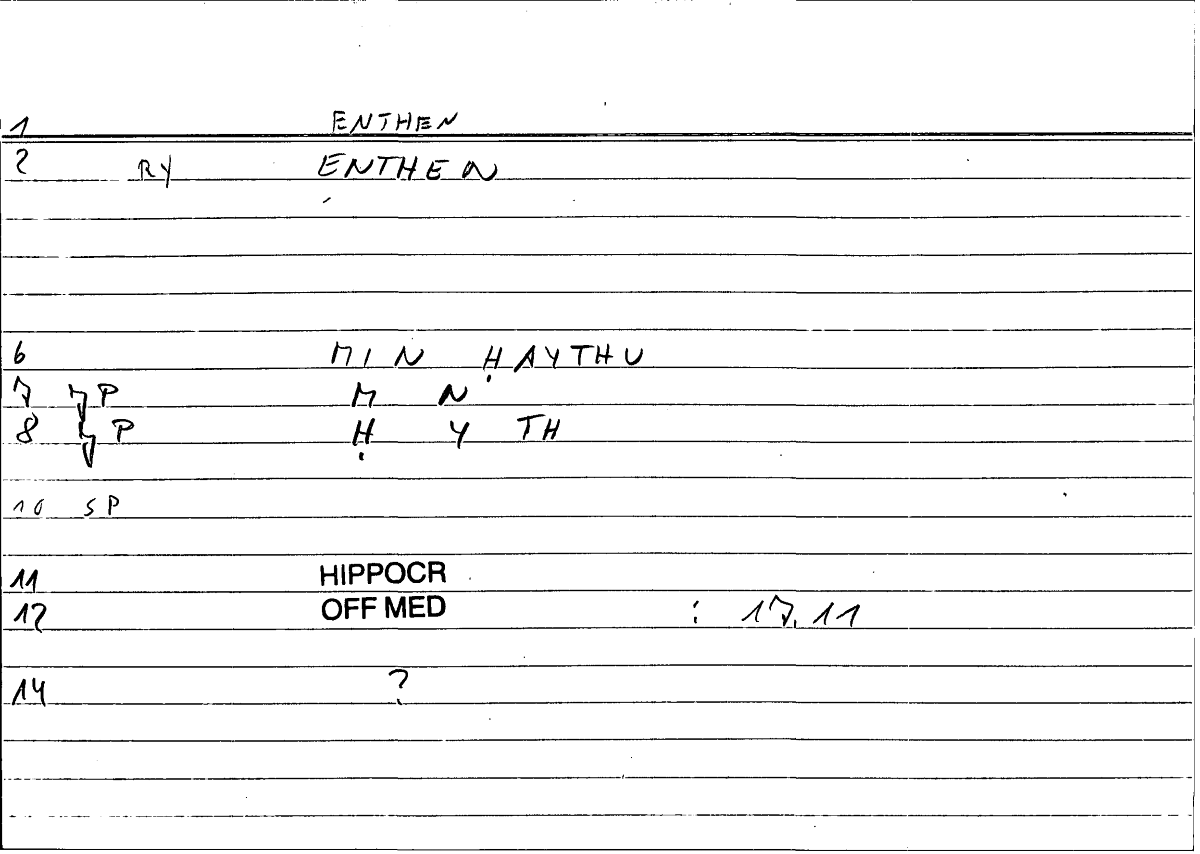 1 ENTHEN
2 RY ENTHEN
6 MIN ḤAYTHU
7 P M N
8 P Ḥ Y TH
10 SP
11 HIPPOCR
12 OFF MED : 17.11
14 ?